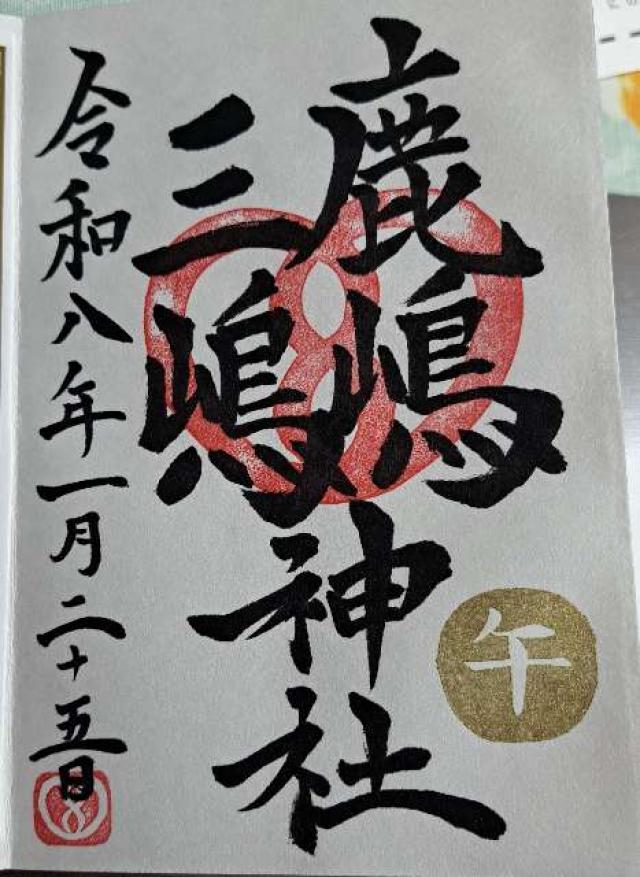 鹿嶋
三嶋
神社
午
令和八年一月二十五日